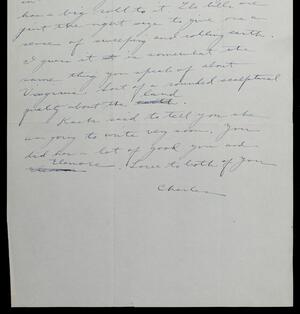 has a big roll to it. The hills are
just the right size to give one a
sense of sweeping and rolling earth.
I guess it is somewhat the
same thing you speak of about
Virginia. Sort of a rounded sculptural
quality about the land
said to tell you she
is going to write very soon. You
did a lot of good you and
Elenore. Love to both of you
Charles